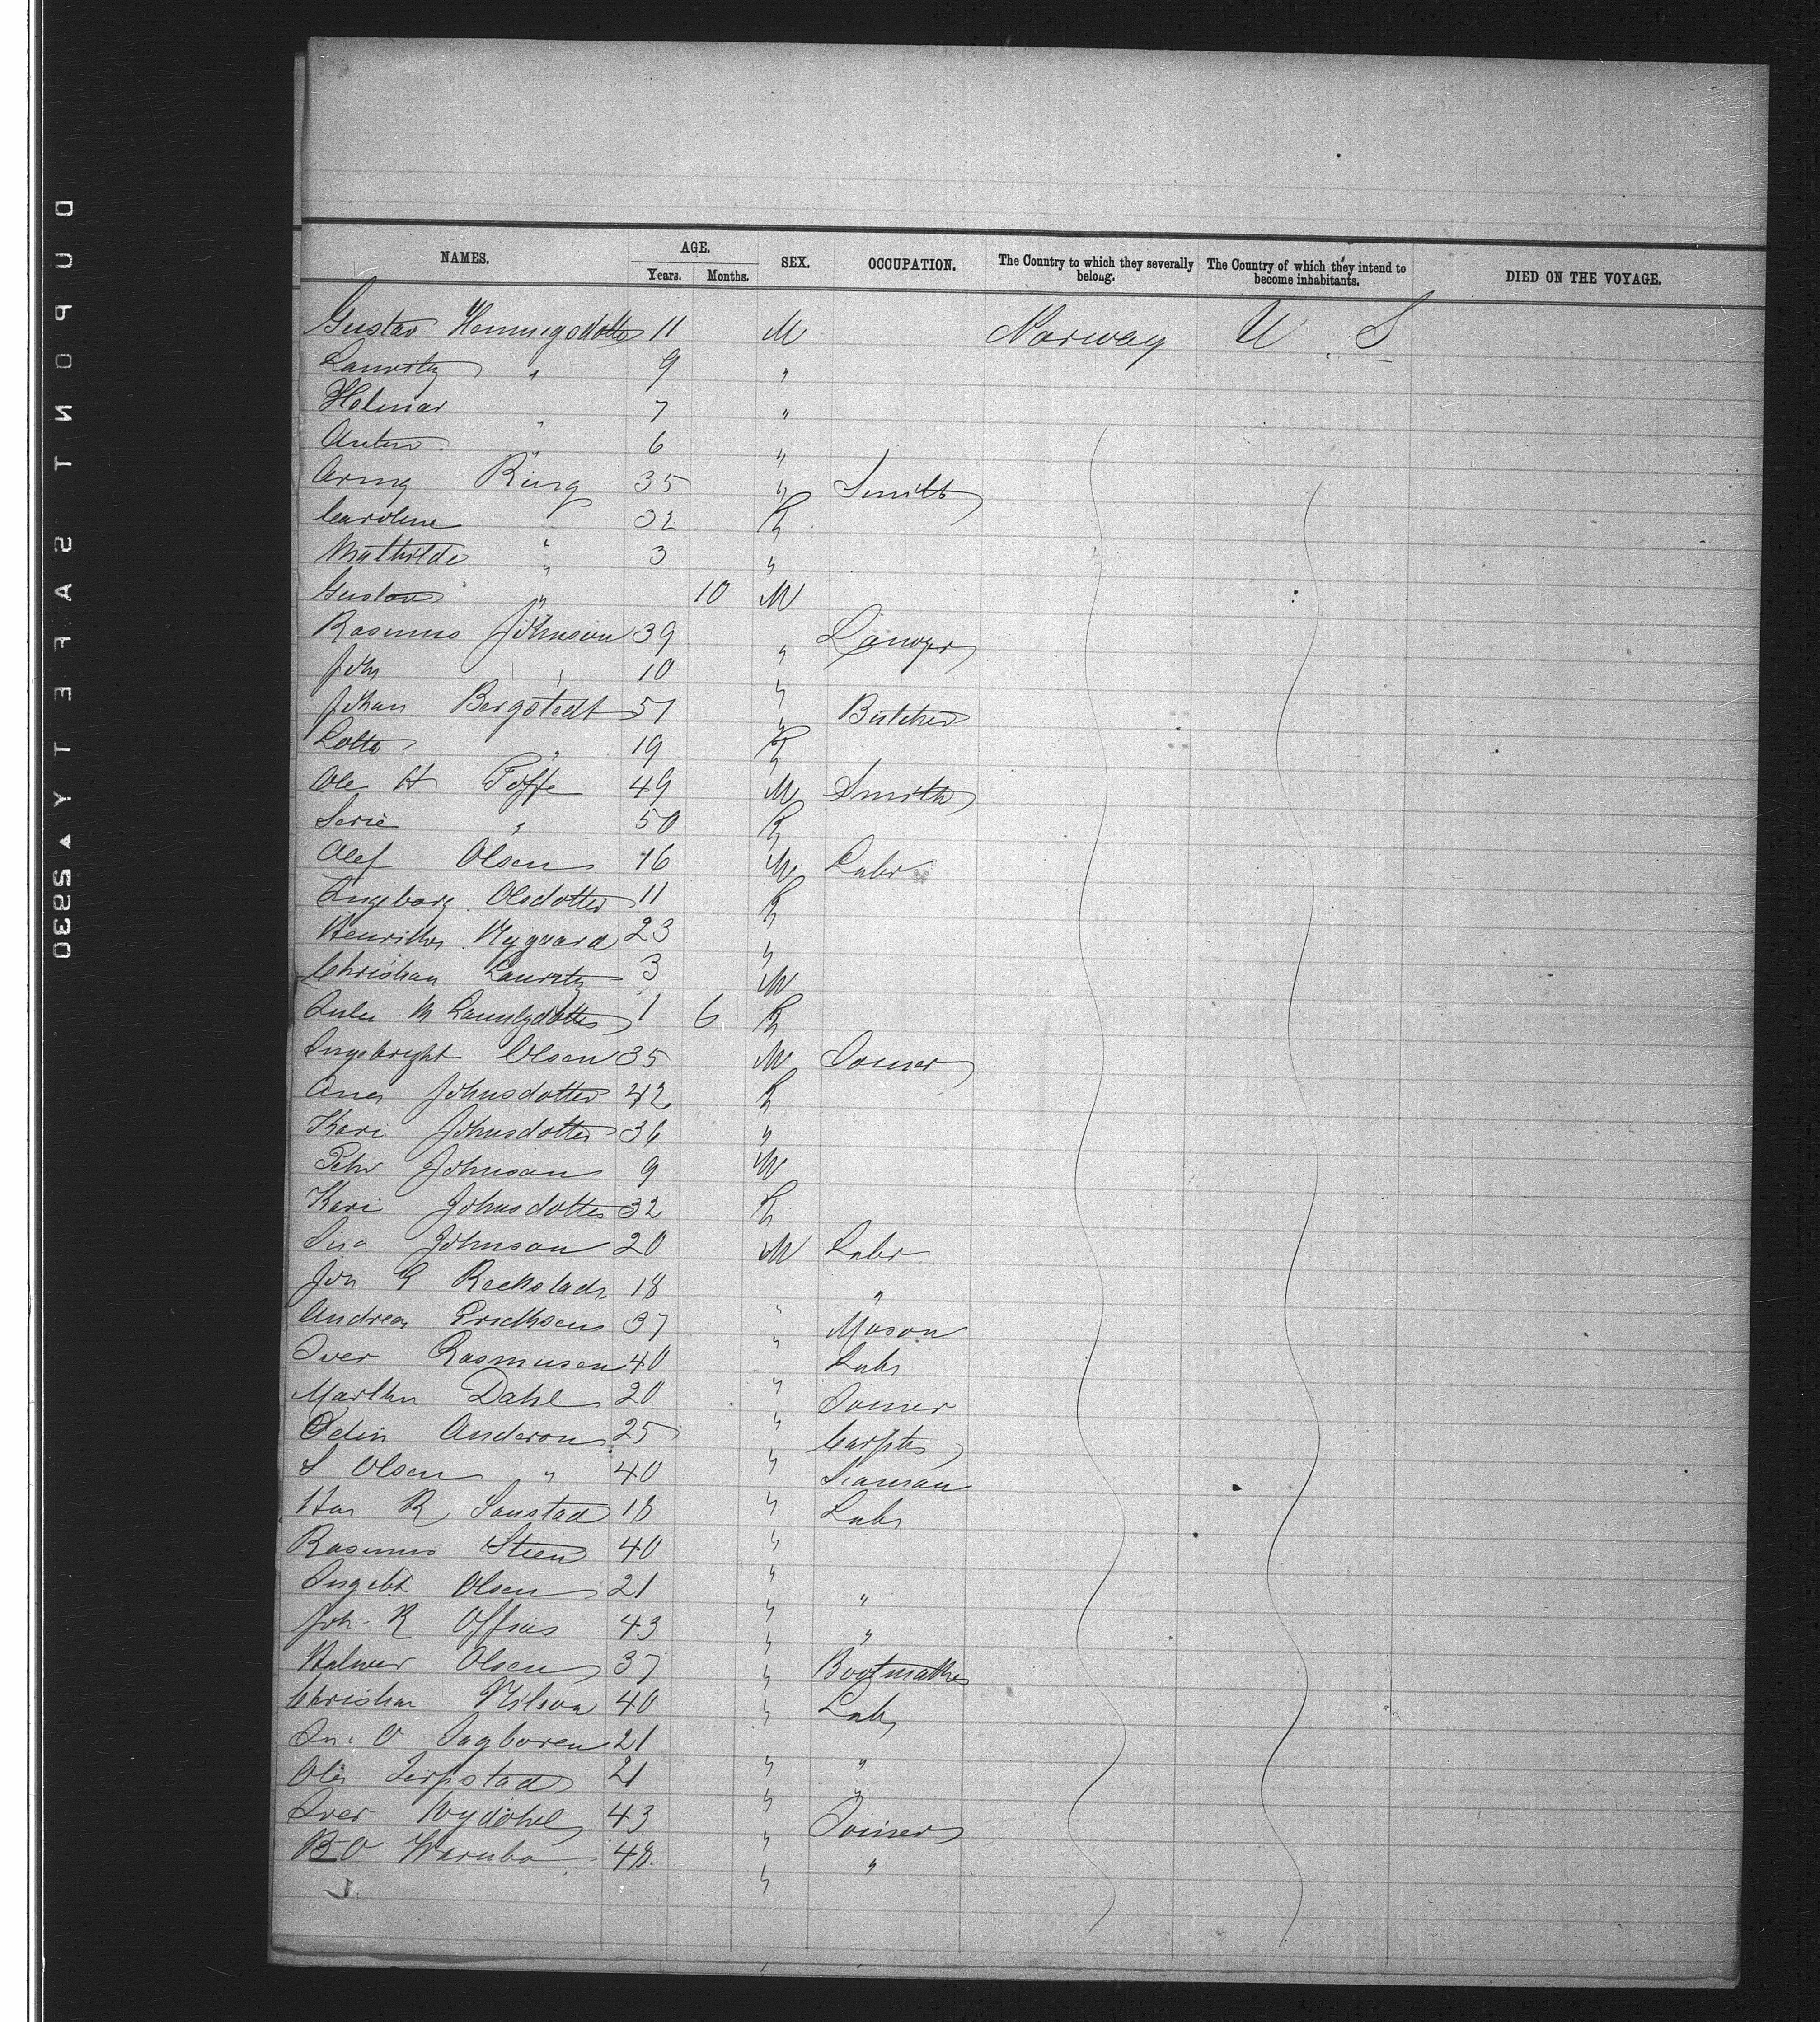 NAMES. AGE. SEX. OCCUPATION. The Country to which they severally belong. The Country of which they intend to become inhabitants. DIED ON THE VOYAGE.
Years. Months.
Gustav Henningsdotter 11 M Norway U. S
Lauritz " 9 "
Holmar " 7 "
Anton " 6 "
Ring 35 " Smith
Caroline " 32 F
Mathilde " 3 "
Gustav " 10 M
Rasmus Johnson 39 "
John " 10 "
Johan Bergstedt 51 " Butcher
Lotta " 19 F
Ole H Toffe 49 M Smith
Serie " 50 F
Olef Olsen 16 M Labr
Ingeborg Olsdotter 11 F
Nygaard 23 "
Christian Lauritz 3 M
M Lauritzdotter 1 6 F
Ingebright Olsen 35 M Joiner
Ane Johnsdotter 42 F
Kari Johnsdotter 36 "
Pehr Johnson 9 M
Kari Johnsdotter 32 F
Johnson 20 M Labr
Jon G 18 " "
Andreas Erickson 37 " Mason
Iver Rasmusen 40 " Labr
Dahl 20 " Joiner
Odin Anderson 25 " Carptr
S Olsen " 40 " Seaman
R Sanstad 18 " Labr
Rasmus Steen 40 "
Ingebt Olsen 21 " "
Joh. R 43 " "
Halver Olsen 37 " Bootmaker
Christian Nilson 40 " Labr
O 21 " "
Ole Terpstad 21 " "
Iver 43 " Joiner
B O 48 " "
DUPONT SAFETY ▲ S930